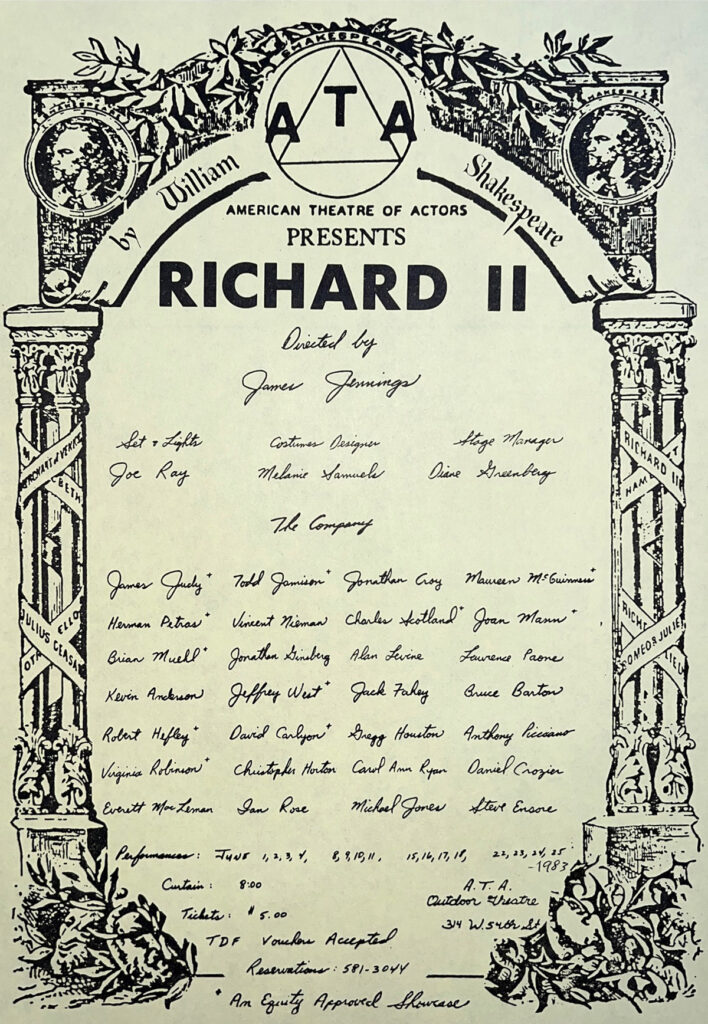 SHAKESPEARE
SHAKESPEARE
SHAKESPEARE
ATA
by William Shakespeare
AMERICAN THEATRE OF ACTORS
PRESENTS
RICHARD II
Directed by
James Jennings
Set & Lights Costumes Designer Stage Manager
Joe Ray Melanie Samuels Diane Greenberg
The Company
James Judy+ Todd Jamison+ Jonathan Croy Maureen McGuinness+
Herman Petras+ Vincent Nieman Charles Scotland+ Joan Mann+
Brian Muehl+ Jonathan Ginsberg Alan Levine Laurence Paone
Kevin Anderson Jeffrey West+ Jack Fahey Bruce Barton
Robert Hefley+ David Carlyon+ Gregg Houston Anthony Picciano
Virginia Robinson+ Christopher Horton Carol Ann Ryan Daniel Crozier
Everett MacLeman Ian Rose Michael Jones Steve Encore
MERCHANT of VENICE
MACBETH
JULIUS CEASAR
OTHELLO
RICHARD III
HAM
RICH
ROMEO & JULIE
LIEU
Performances: June 1,2,3,4, 8,9,10,11, 15,16,17,18, 22,23,24,25
-1983
Curtain: 8:00
Tickets: $5.00
TDF Vouchers Accepted
Reservations: 581-3044
A.T.A.
Outdoor Theatre
314 W. 54th St
+ An Equity Approved Showcase